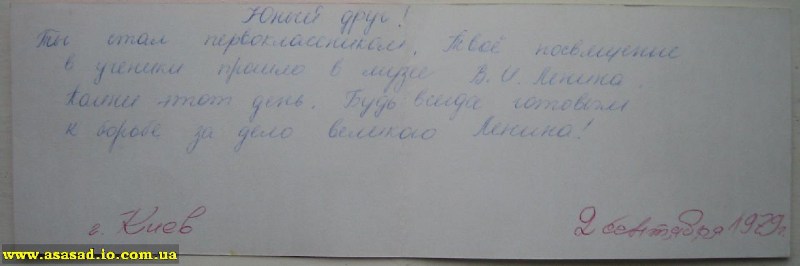 Юный друг!
Ты стал первоклассником. Твоё посвящение
в ученики прошло в музее В. И. Ленина
Помни этот день. Будь всегда готовым
к борбе за дело великого Ленина!
г. Киев
2 сентября 1979г.
www.asasad.io.com.ua